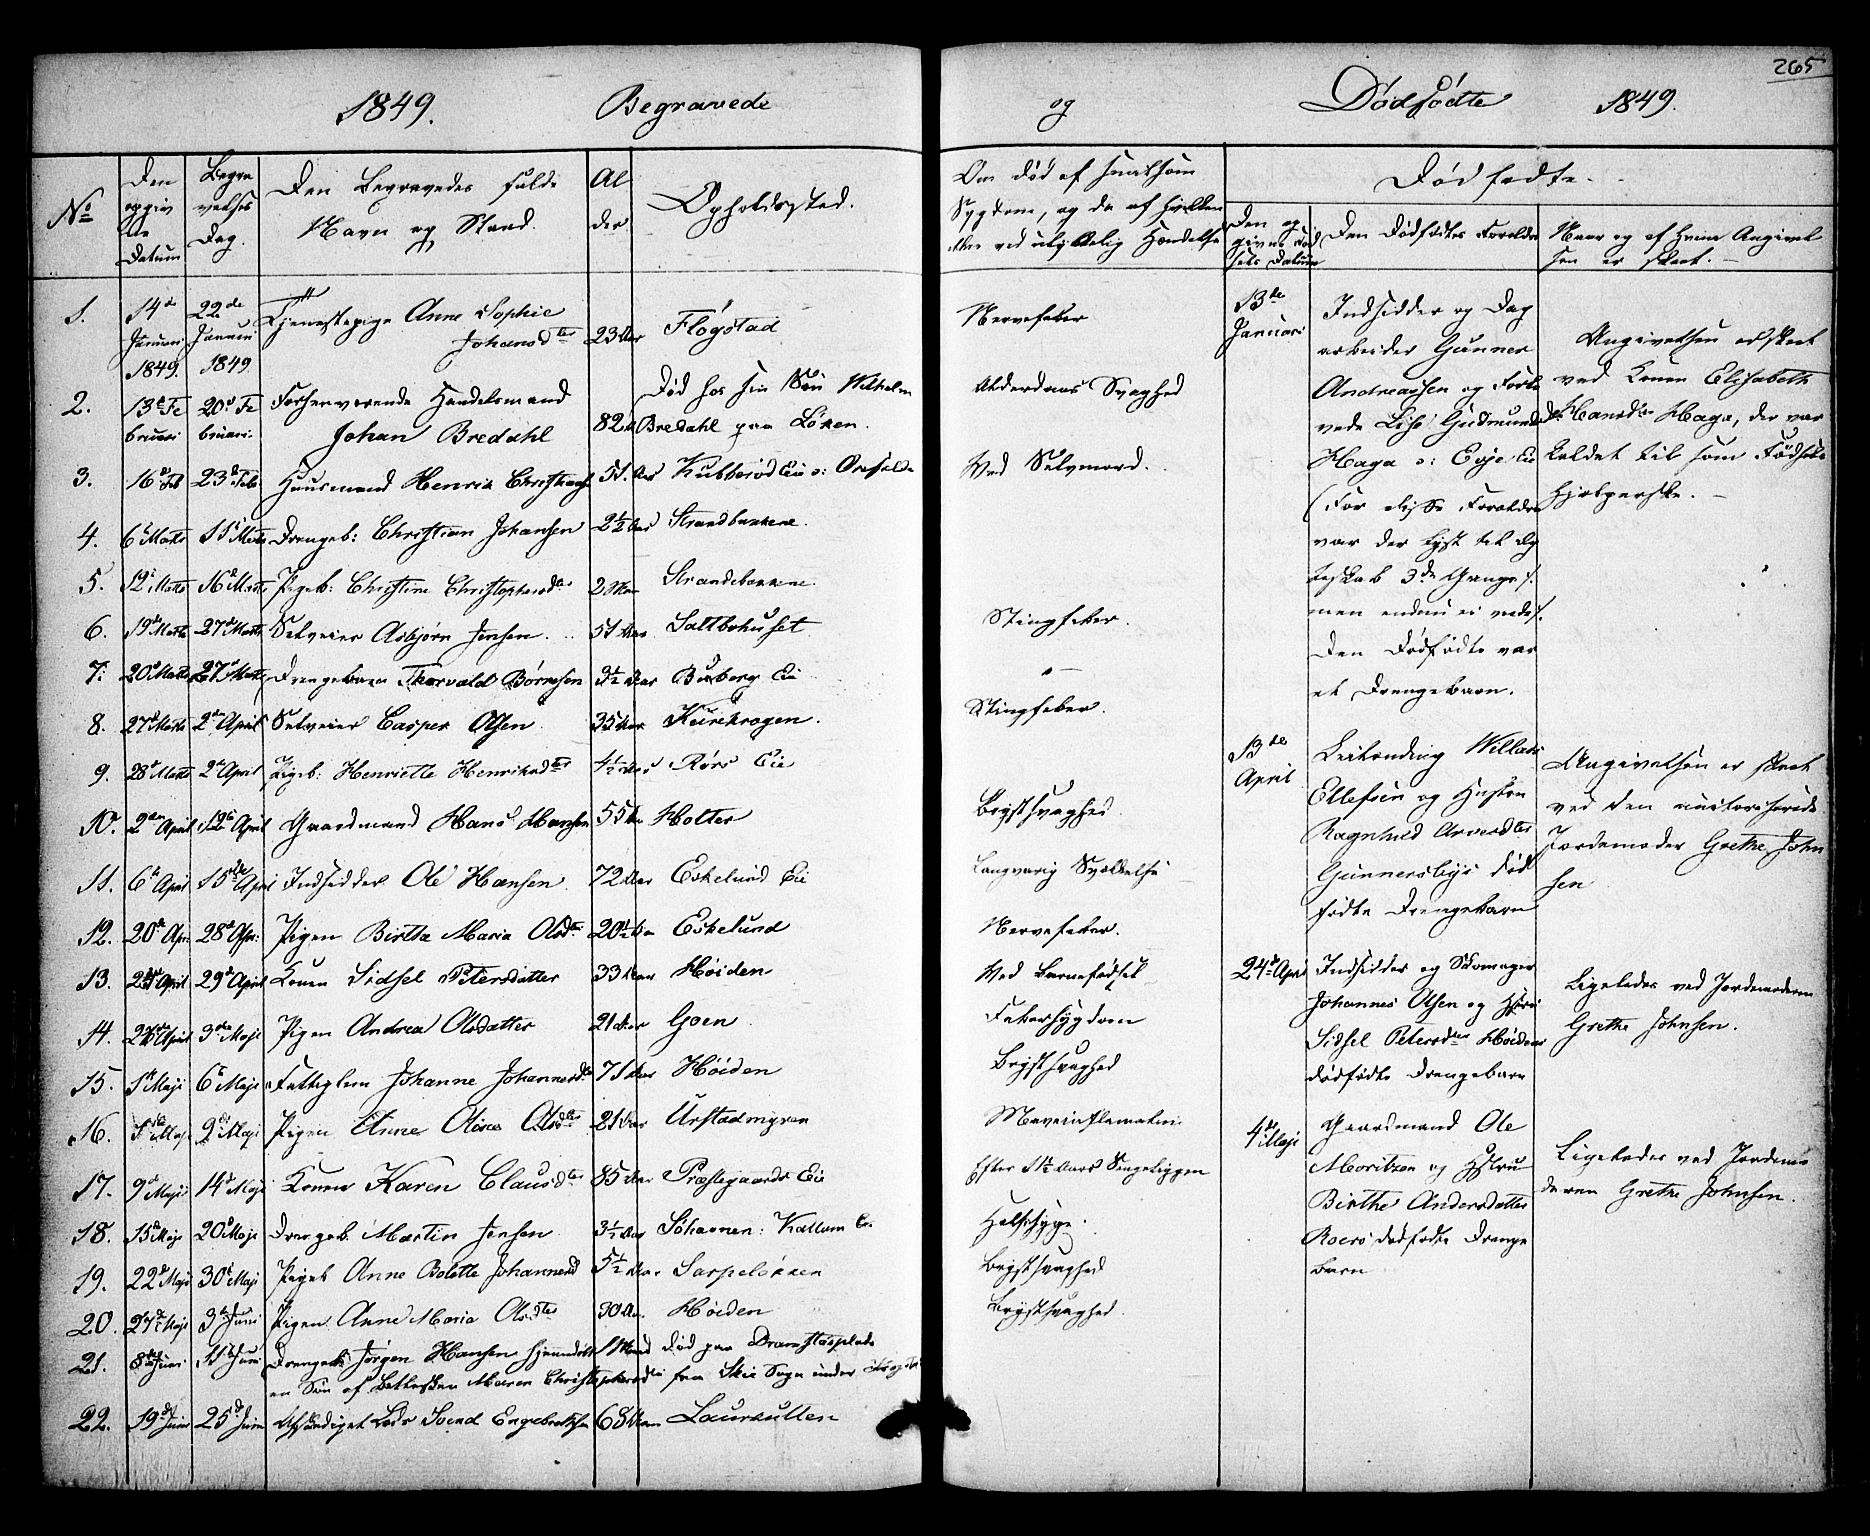 265
1849. Begravede og Dødfødte 1849.
No
Den opgivne Datum
Begravelses Dag.
Den Begravedes fulde Navn og Stand.
Alder
Opholdssted.
Om død af smitsom Sygdom, og da af hvilken eller ved ulykkelig Hændelse
Dødfødte.
Den opgivne Fødsels Datum
Den Dødfødtes Forældre
Naar og af hvem Angivelsen er skeet.
1. 14de Januari 1849. 22de Januari 1849 Tjenestepige Anne Sophie Johansdtr 23 Aar Flogstad Nervefeber
2. 13de Februari 20de Februari Forhenværende Handelsmand Johan Bredahl 82 Død hos sin Søn Wilhelm Bredahl paa Löken. Alderdoms Svaghed
3. 16de Feb 23de Feb Huusmand Henrik Christians 51. Aar Kubberød Eie Ved Selvmord.
4. 6te Marts 11te Marts Drengeb: Christian Johansen 2½ Aar Strandbakkene.
5. 12te Marts 16de Marts Pigeb: Christine Christophersdtr 2 Strandebakkene.
6. 19de Marts 27de Marts Selveier Asbjørn Jensen. 51 Aar Saltbohuset Stingfeber.
7. 20de Marts 27de Marts Drengebarn Thorvald Børresen 3½ Aar Buberg Eie "
8. 27de Marts 2den April Selveier Casper Olsen 35 Aar Kurekrogen. Stingfeber.
9. 28de Marts 2den April Pigeb: Henriette Henriksdtr 4½ Aar Rørs Eie
10. 2den April April Gaardmand Hans Hansen 55 Aar Holter Brystsvaghed.
11. 6te April 15de April Indsidder Ole Hansen 72 Aar Eskelund Eie Langvarig Svækkelse
12. 20de Apr. 28de Apr. Pigen Birtha Maria Olsdtr 20½ Aar Eskelund Nervefeber.
13. April 29de April Konen Sidsel Petersdatter 33 Aar Høiden Ved Barnefødsel
14. 26de April 3die Maji Pigen Andrea Olsdatter 21 Aar Goen Febersygdom
15. 1te Maji 6te Maji Fattiglem Johanne Johannesdtr 71 Aar Høiden Brystsvaghed
16. Maji 9de Maji Pigen Anne Olsdtr 21 Aar Urstadmyren
17. 9de Maji 14de Maji Konen Karen Clausdtr 85 Aar Præstegaards Eie Efter 1½ Aars Sengeliggen
18. 15de Maji 20de Maji Drengeb. Martin Jensen 3½ Aar Söhavnen: Kallum Eie Halssyge.
19. 22de Maji 30te Maji Pigeb Anne Bolette Johannesd 5½ Aar Sarpeløkken Brystsvaghed
20. 27de Maji 3die Juni Pigen Anne Maria Olsdtr 30 Aar. Høiden Brystsvaghed.
21. 8de Juni 11te Juni Drengeb. Jørgen Hansen hjemmedøbt 1 Maaned død paa
en Søn af Betlersken Maren Christophersdtr fra Skie Sogn under
22. 19de Juni 25de Juni Afskediget Lods Svend Engebretsen 68 Aar Laurkullen
13de Januari
Indsidder og Dag
arbeider Gunner
Andreassen og Forlo
vede Lise Gudmunds
Haga o: Evje Eie
(For disse Forældre
var der lyst til Æg
teskab 3de Gange
men endnu ei viede).
Den Dødfødte var
et Drengebarn.
Angivelsen er skeet
ved Konen Elisabeth
Hansdtr Haga, der var
kaldet til som Fødsels
hjælperske.
13de April
Leilending Willas
Ellefsen og Hustru
Ragnhild
Gunnersbys død
fødte Drengebarn
Angivelsen er skeet
ved den autoriserede
Jordemoder Grethe John
sen
24de April
Indsidder og Skomager
Johannes Olsen og Hustru
Sidsel Petersdtr Høidens
dødfødte Drengebarn
Ligeledes ved Jordemoderen
Grethe Johnsen.
4de Maji
Gaardmand Ole
Moritzen og Hustru
Birthe Andersdatter
Roers dødfødte Drenge
barn
Ligeledes ved Jordemo
deren Grethe Johnsen.